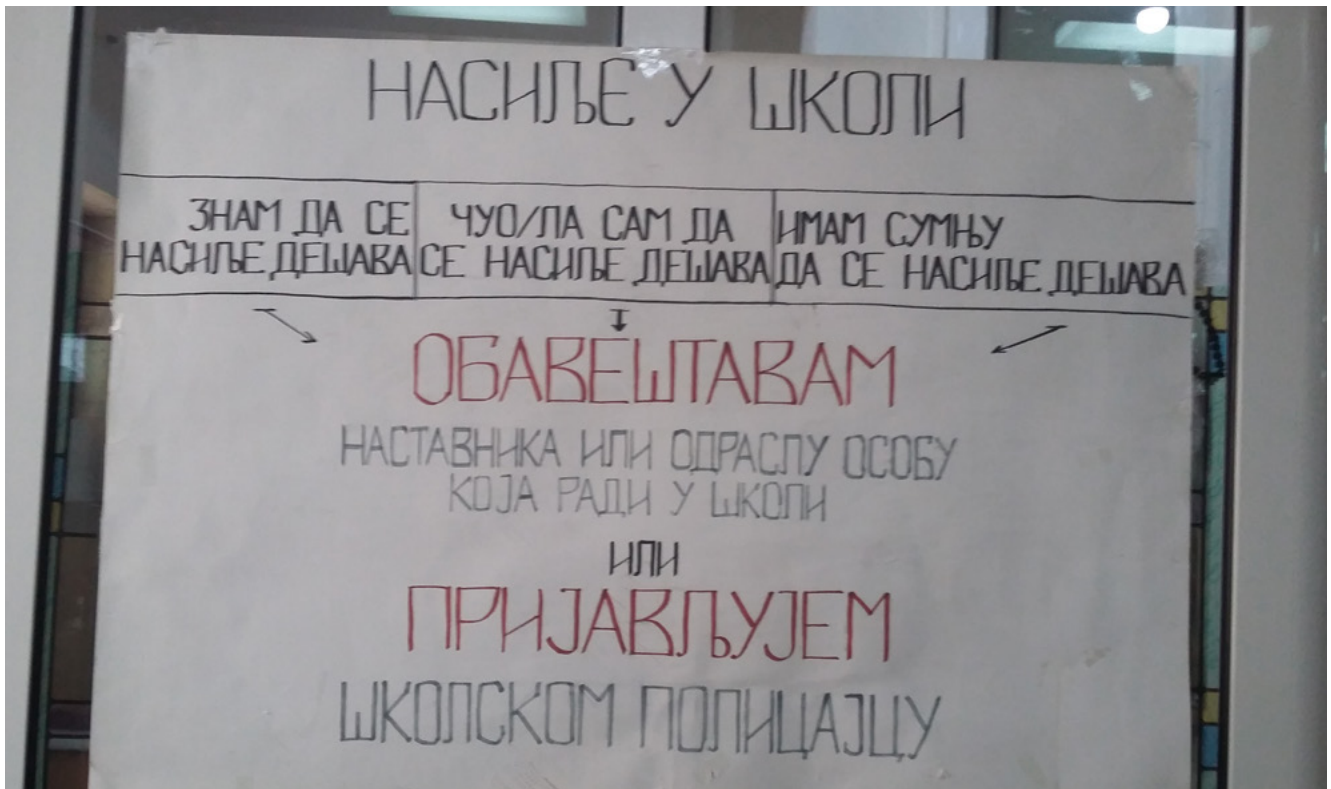 НАСИЉЕ У ШКОЛИ
ЗНАМ ДА СЕ
НАСИЉЕ ДЕШАВА
ЧУО/ЛА САМ ДА
СЕ НАСИЉЕ ДЕШАВА
ИМАМ СУМЊУ
ДА СЕ НАСИЉЕ ДЕШАВА
ОБАВЕШТАВАМ
НАСТАВНИКА ИЛИ ОДРАСЛУ ОСОБУ
КОЈА РАДИ У ШКОЛИ
ИЛИ
ПРИЈАВЉУЈЕМ
ШКОЛСКОМ ПОЛИЦАЈЦУ